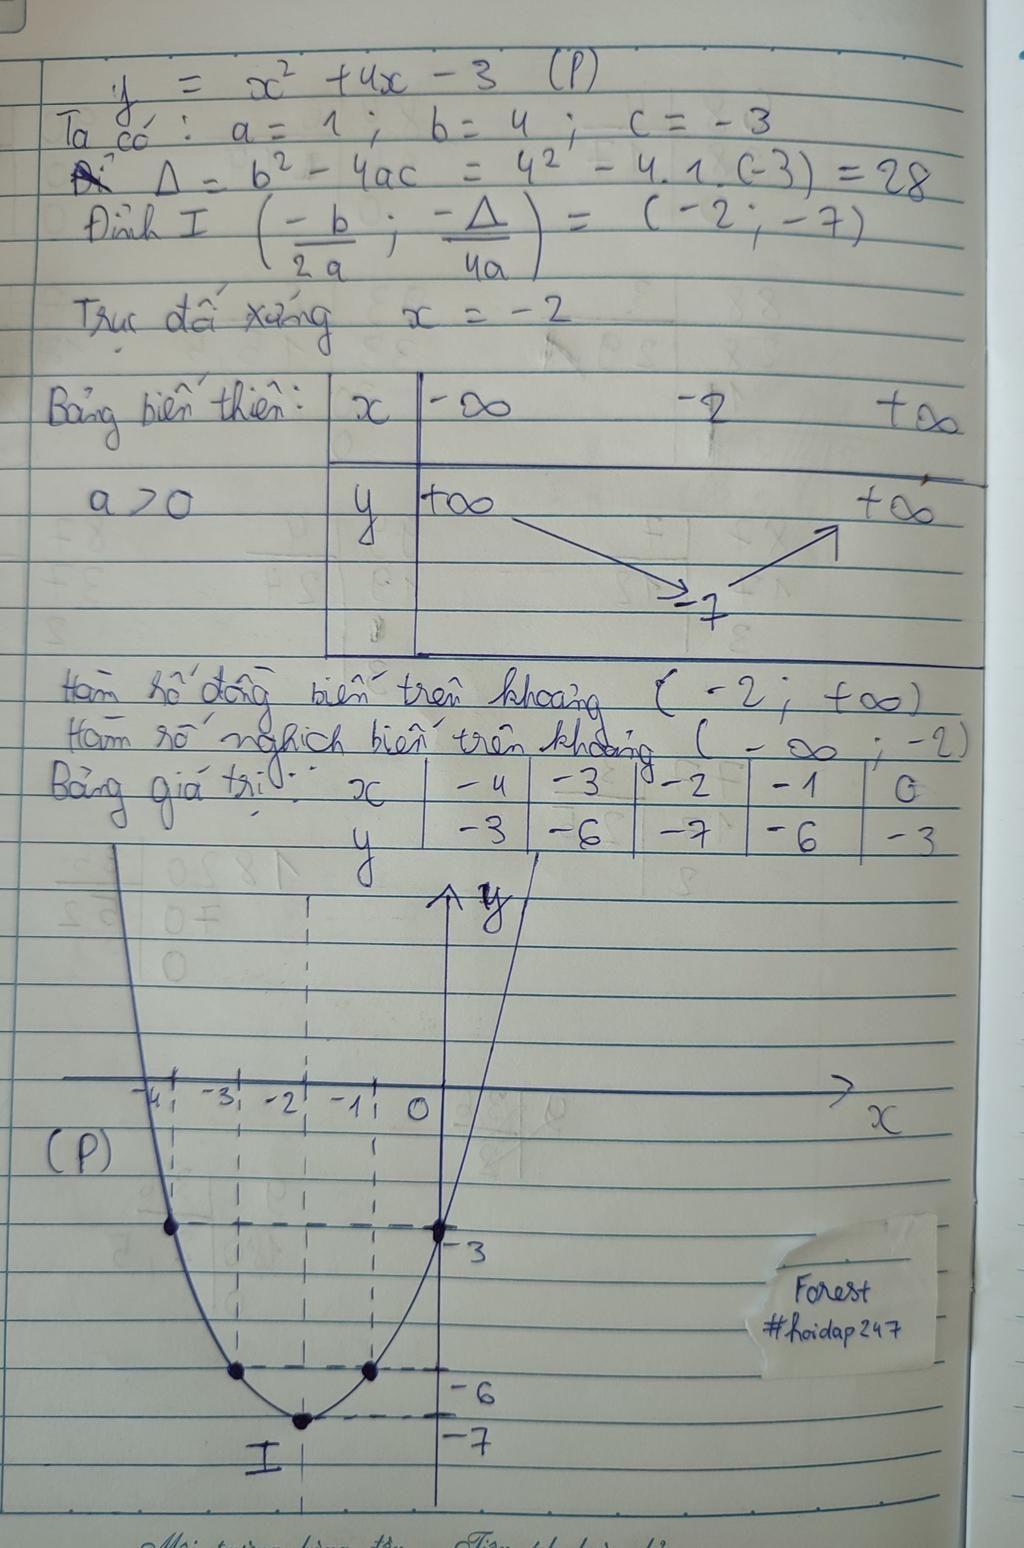 y = x² + 4x - 3 (P)
Ta có: a = 1; b = 4; c = -3
Δ = b² - 4ac = 4² - 4.1.(-3) = 28
Đỉnh I (-b/2a; -Δ/4a) = (-2; -7)
Trục đối xứng x = -2
Bảng biến thiên: x -∞ -2 +∞
a > 0 y +∞ +∞
-7
Hàm số đồng biến trên khoảng (-2; +∞)
Hàm số nghịch biến trên khoảng (-∞; -2)
Bảng giá trị: x -4 -3 -2 -1 0
y -3 -6 -7 -6 -3
y
-4 -3 -2 -1 0
x
(P)
-3
Forest
#hoidap247
-6
-7
I